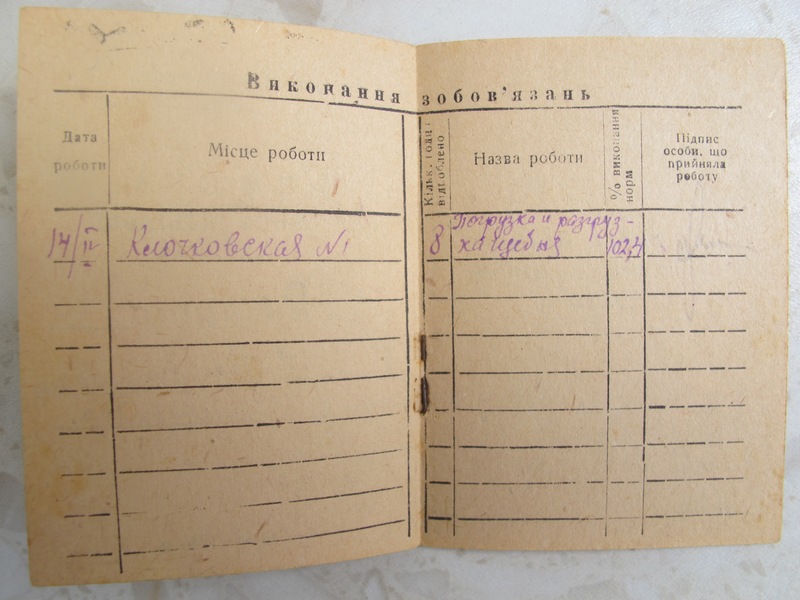 Виконання зобов'язань
Дата
роботи
Місце роботи
Кільк. годин
відроблено
Назва роботи
% виконання
норм
Підпис
особи, що
прийняла
роботу
14/II
Клочковская №1
8
Погрузка и разгруз-
ка щебня
102,4